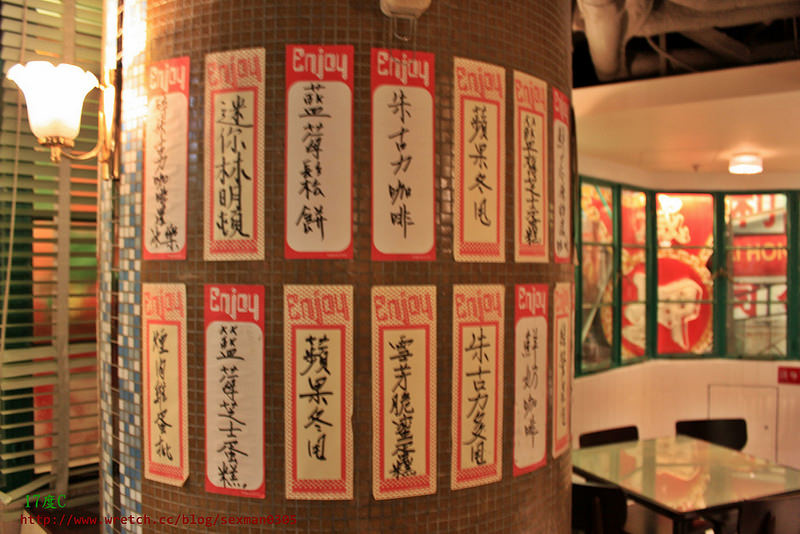 Enjoy
Enjoy
迷你林明頓
Enjoy
藍莓鬆餅
Enjoy
朱古力咖啡
Enjoy
蘋果冬甩
Enjoy
藍莓芝士蛋糕
Enjoy
煙肉雞蛋批
Enjoy
藍莓芝士蛋糕
Enjoy
蘋果冬甩
Enjoy
雪芽脆蜜蛋糕
Enjoy
朱古力冬甩
Enjoy
鮮奶咖啡
17度C
http://www.wretch.cc/blog/sexman0405